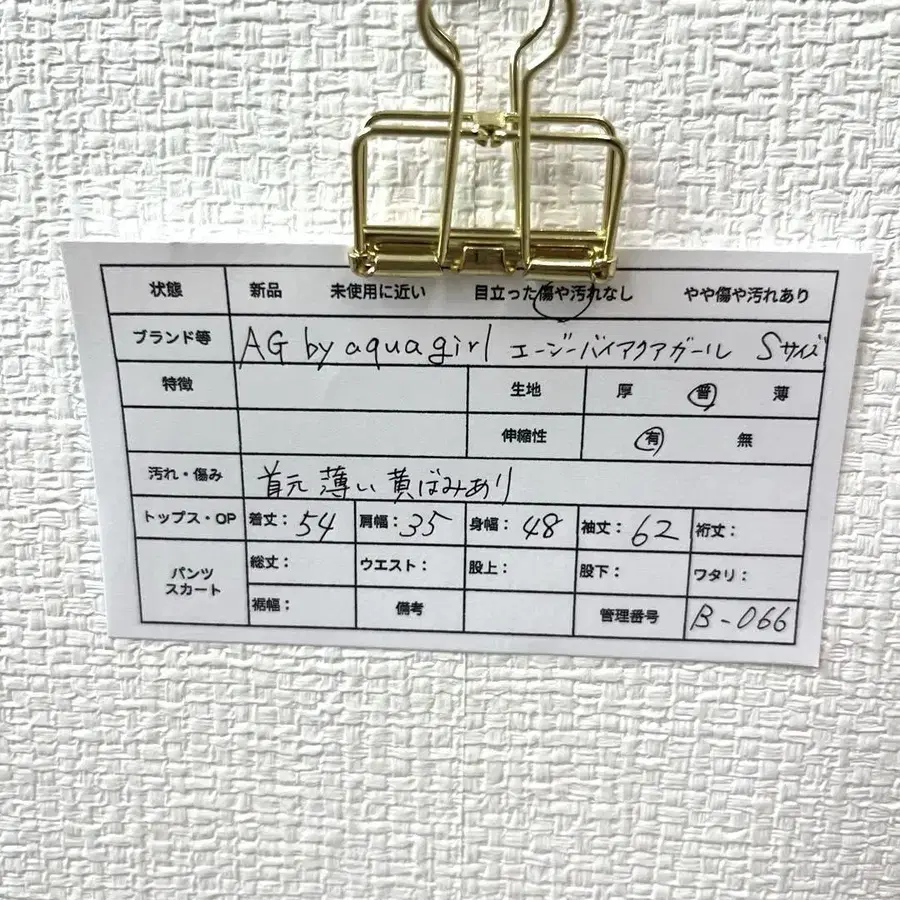 状態 新品 未使用に近い 目立った傷や汚れなし やや傷や汚れあり
ブランド等 AG by aquagirl エージーバイアクアガール Sサイズ
特徴 生地 厚 普 薄
伸縮性 有 無
汚れ・傷み 首元 薄い 黄ばみあり
トップス・OP 着丈: 54 肩幅: 35 身幅: 48 袖丈: 62 裄丈:
パンツ スカート 総丈: ウエスト: 股上: 股下: ワタリ:
裾幅: 備考 管理番号 B-066